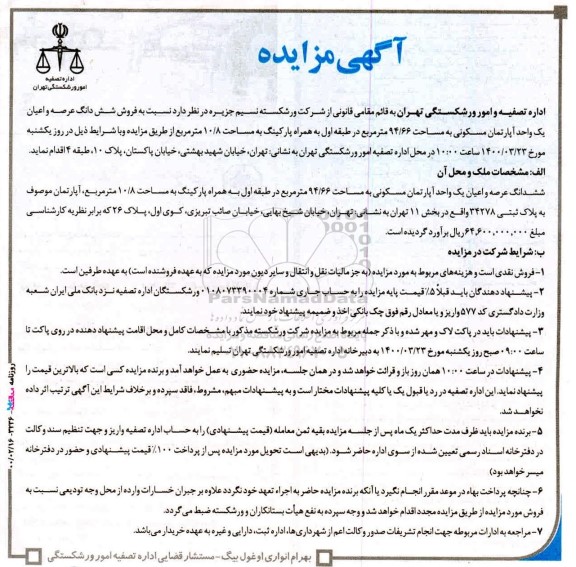 آگهی مزایده
اداره تصفیه
امور ورشکستگی تهران
اداره تصفیه و امور ورشکستگی تهران به قائم مقامی قانونی از شرکت ورشکسته نسیم جزیره در نظر دارد نسبت به فروش شش دانگ عرصه و اعیان
یک واحد آپارتمان مسکونی به مساحت ۹۴/۶۶ مترمربع در طبقه اول به همراه پارکینگ به مساحت ۱۰/۸ مترمربع از طریق مزایده وبا شرایط ذیل در روز یکشنبه
مورخ ۱۴۰۰/۰۳/۲۳ ساعت ۱۰:۰۰ در محل اداره تصفیه امور ورشکستگی تهران به نشانی: تهران، خیابان شهید بهشتی، خیابان پاکستان، پلاک ۱۰، طبقه ۴ اقدام نماید.
الف: مشخصات ملک و محل آن
ششدانگ عرصه و اعیان یک واحد آپارتمان مسکونی به مساحت ۹۴/۶۶ مترمربع در طبقه اول به همراه پارکینگ به مساحت ۱۰/۸ مترمربع، آپارتمان موصوف
به پلاک ثبتی ۳۴۲۷۸ واقع در بخش ۱۱ تهران به نشانی: تهران، خیابان شیخ بهایی، خیابان صائب تبریزی، کوی اول، پلاک ۲۶ که برابر نظریه کارشناسی
مبلغ ۶۴,۶۰۰,۰۰۰,۰۰۰ ریال برآورد گردیده است.
ب: شرایط شرکت در مزایده
۱- فروش نقدی است و هزینه‌های مربوط به مورد مزایده (به جز مالیات نقل و انتقال و سایر دیون مورد مزایده که به عهده فروشنده است) به عهده طرفین است.
۲- پیشنهاد دهندگان باید قبلاً ۵٪ قیمت پایه مزایده را به حساب جاری شماره ۰۱۰۸۰۷۳۳۹۰۰۰۴ ورشکستگان اداره تصفیه نزد بانک ملی ایران شعبه
وزارت دادگستری کد ۵۷۷ واریز و یا معادل رقم فوق چک بانکی اخذ و ضمیمه پیشنهاد خود نمایند.
۳- پیشنهادات باید در پاکت لاک و مهر شده و با ذکر جمله مربوط به مزایده شرکت ورشکسته مذکور با مشخصات کامل و محل اقامت پیشنهاد دهنده در روی پاکت تا
ساعت ۰۹:۰۰ صبح روز یکشنبه مورخ ۱۴۰۰/۰۳/۲۳ به دبیرخانه اداره تصفیه امور ورشکستگی تهران تسلیم نمایند.
۴- پیشنهادات در ساعت ۱۰:۰۰ همان روز باز و قرائت خواهد شد و در همان جلسه، مزایده حضوری به عمل خواهد آمد و برنده مزایده کسی است که بالاترین قیمت را
پیشنهاد نماید. این اداره تصفیه در رد یا قبول یک یا کلیه پیشنهادات مختار است و به پیشنهادات مبهم، مشروط، فاقد سپرده و برخلاف شرایط این آگهی ترتیب اثر داده
نخواهد شد.
۵- برنده مزایده باید ظرف مدت حداکثر یک ماه پس از جلسه مزایده بقیه ثمن معامله (قیمت پیشنهادی) را به حساب اداره تصفیه واریز و جهت تنظیم سند وکالت
در دفترخانه اسناد رسمی تعیین شده از سوی اداره حاضر شود. (بدیهی است تحویل مورد مزایده پس از پرداخت ۱۰۰٪ قیمت پیشنهادی و حضور در دفترخانه
میسر خواهد بود)
۶- چنانچه پرداخت بهاء در موعد مقرر انجام نگیرد یا آنکه برنده مزایده حاضر به اجراء تعهد خود نگردد علاوه بر جبران خسارات وارده از محل وجه تودیعی نسبت به
فروش مورد مزایده از طریق مزایده مجدد اقدام خواهد شد و وجه سپرده به نفع هیأت بستانکاران و ورشکسته ضبط می‌گردد.
۷- مراجعه به ادارات مربوطه جهت انجام تشریفات صدور وکالت اعم از شهرداری‌ها، اداره ثبت، دارایی و غیره به عهده خریدار می‌باشد.
بهرام انواری اوغول بیگ - مستشار قضایی اداره تصفیه امور ورشکستگی
ParsNamadData